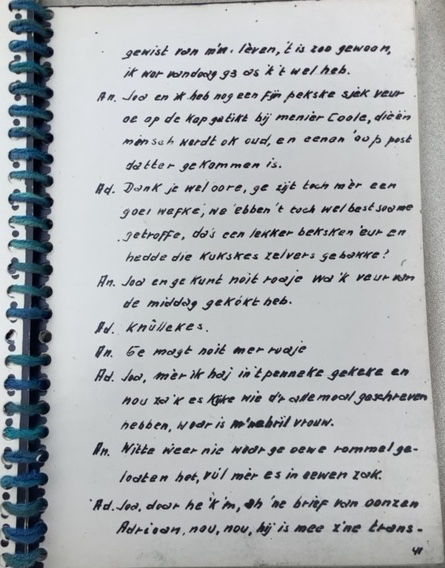 gewist van m'n lèven, 't is zoo gewoon,
ik wor vandaag 93 as 'k 't wel heb.
An. Joa en ik heb nog een fijn pakske sjek veur
oe op de kop getikt bij menier Coole, dieën
minsch wordt ok oud, en eenen 'oop post
datter gekommen is.
Ad. Dank je wel oore, ge zijt toch mèr een
goei wefke, we 'ebben 't toch wel best saame
getroffe, da's een lekker beksken 'eur en
hedde die kukskes zelvers gebakke?
An. Joa en ge kunt noit roaje wa'k veur van
de middag gekókt heb.
Ad. Knûllekes.
An. Ge magt noit mer roaje
Ad. Joa, mèr ik haj in 't penneke gekeke en
nou za'k es kijke wie d'r allemaal geschreven
hebben, woar is m'nebril vrouw.
An. Witte weer nie woar ge oewe rommel ge-
loaten het, vúl mèr es in oewen zak.
Ad. Joa, doar he'k 'm, ah 'ne brief van oonzen
Adrioan, nou, nou, hij is mee z'ne trans-
41